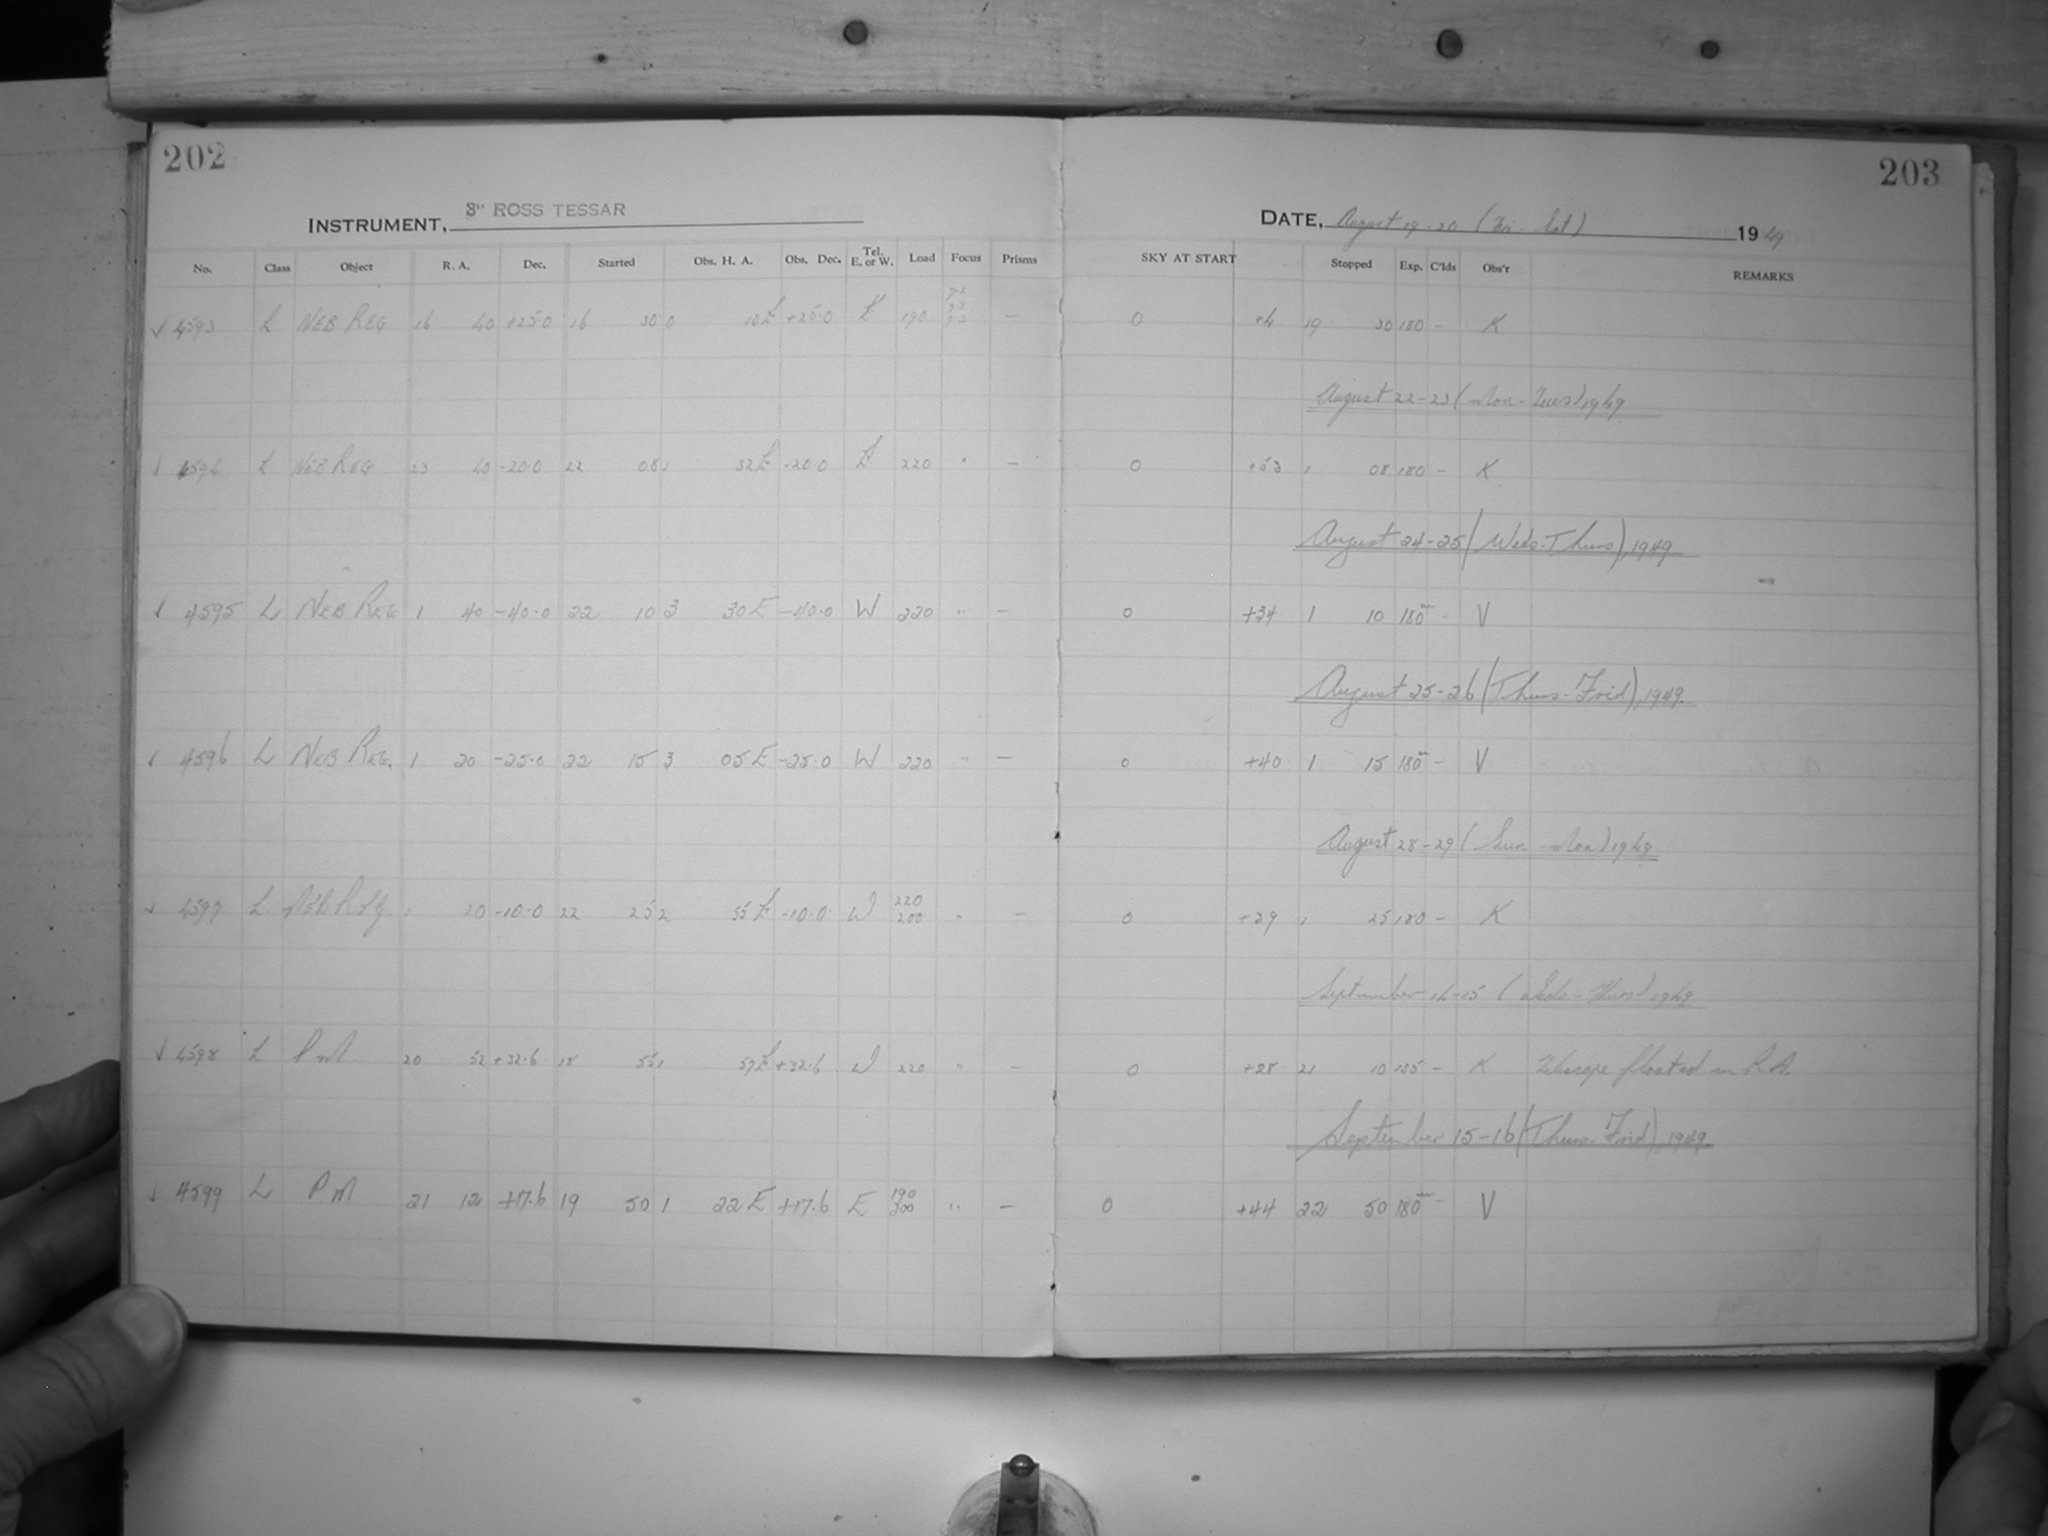 202
203
INSTRUMENT, 3" ROSS TESSAR
DATE, August 19-20 (Fri-Sat) 1949
No. Class Object R. A. Dec. Started Obs. H. A. Obs. Dec. Tel. E. or W. Load Focus Prisms SKY AT START Stopped Exp. C'lds Obs'r REMARKS
✓ 4593 L NEB REG 16 40 +25.0 16 30 0 10 E +25.0 E 190 — 0 +4 19 30 180 — K
August 22-23 (Mon-Tues) 1949
✓ 4594 L NEB REG 23 40 -20.0 22 08 1 32 E -20.0 E 220 " — 0 +53 1 08 180 — K
August 24-25 (Weds-Thurs), 1949
✓ 4595 L NEB REG 1 40 -40.0 22 10 3 30 E -40.0 W 220 " — 0 +34 1 10 180m — V
August 25-26 (Thurs-Frid), 1949.
✓ 4596 L NEB REG. 1 20 -25.0 22 15 3 05 E -25.0 W 220 " — 0 +40 1 15 180m — V
August 28-29 (Sun-Mon) 1949
✓ 4597 L NEB REG 1 20 -10.0 22 25 2 55 E -10.0 W 220 200 " — 0 +29 1 25 180 — K
September 14-15 (Weds-Thurs) 1949
✓ 4598 L PM 20 52 +32.6 18 55 1 57 E +32.6 W 220 " — 0 +28 21 10 135 — K Telescope floated in R.A.
September 15-16 (Thurs-Frid), 1949.
✓ 4599 L PM 21 12 +17.6 19 50 1 22 E +17.6 E 190 300 " — 0 +44 22 50 180m — V